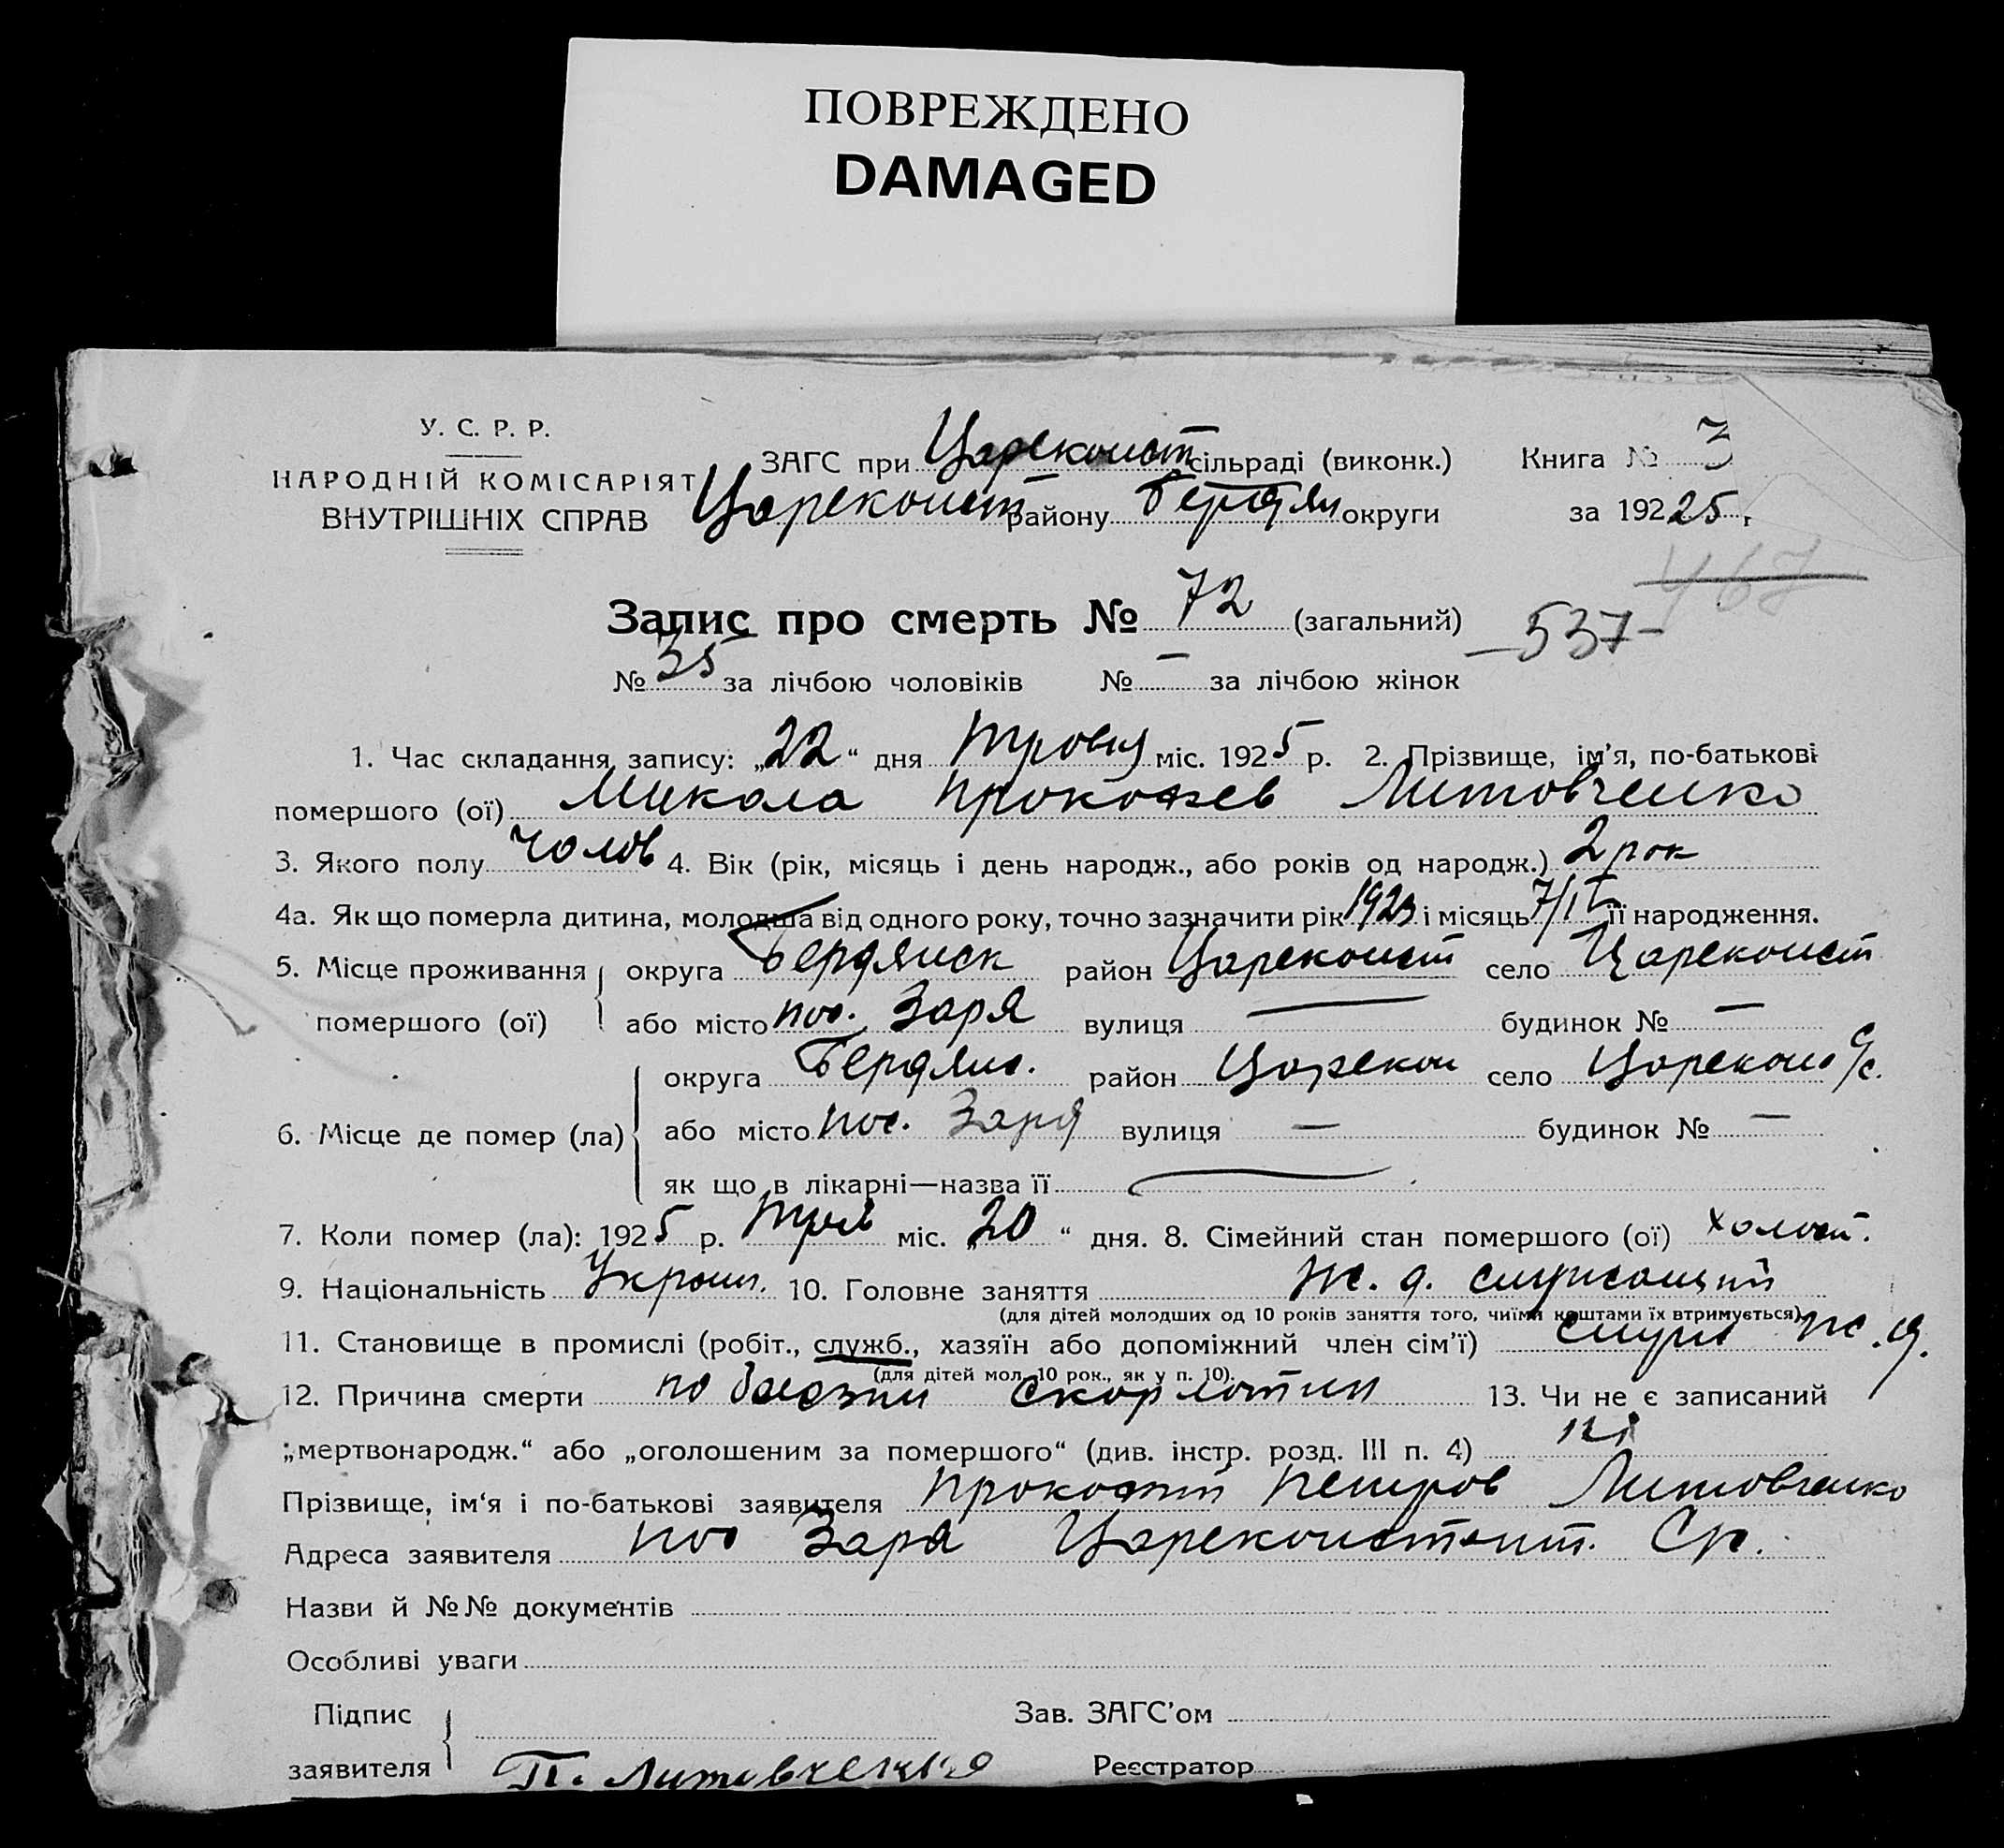 ПОВРЕЖДЕНО
DAMAGED
У. С. Р. Р.
НАРОДНІЙ КОМІСАРІЯТ
ВНУТРІШНІХ СПРАВ
ЗАГС при Цареконст сільраді (виконк.) Книга № 3
Цареконст району Бердян округи за 192 25 г
467
Запис про смерть № 72 (загальний)
—537—
№ 35 за лічбою чоловіків № — за лічбою жінок
1. Час складання запису: „22“ дня травня міс. 1925 р. 2. Прізвище, ім'я, по-батькові
помершого (ої) Микола Прокофев Литовченко
3. Якого полу чолов 4. Вік (рік, місяць і день народж., або років од народж.) 2 рок
4а. Як що померла дитина, молодша від одного року, точно зазначити рік 1923 і місяць її народження.
5. Місце проживання помершого (ої) округа Бердянск район Цареконст село Цареконст
або місто пос. Заря вулиця — будинок № —
6. Місце де помер (ла) округа Бердянс. район Царекон село Цареконс с/с.
або місто пос. Заря вулиця — будинок № —
як що в лікарні—назва її —
7. Коли помер (ла): 1925 р. трав міс. „20“ дня. 8. Сімейний стан помершого (ої) холост.
9. Національність Украин. 10. Головне заняття ж. д. служащий
(для дітей молодших од 10 років заняття того, чиїми коштами їх втримується)
11. Становище в промислі (робіт., служб., хазяїн або допоміжний член сім'ї) служ ж. д.
(для дітей мол. 10 рок., як у п. 10).
12. Причина смерти по болезни скорлотин 13. Чи не є записаний
„мертвонародж.“ або „оголошеним за помершого“ (див. інстр. розд. III п. 4) ні
Прізвище, ім‘я і по-батькові заявителя Прокофий Петров Литовченко
Адреса заявителя пос Заря Цареконстант. Ср.
Назви й №№ документів
Особливі уваги
Підпис заявителя П. Литовченко
Зав. ЗАГС'ом
Реєстратор